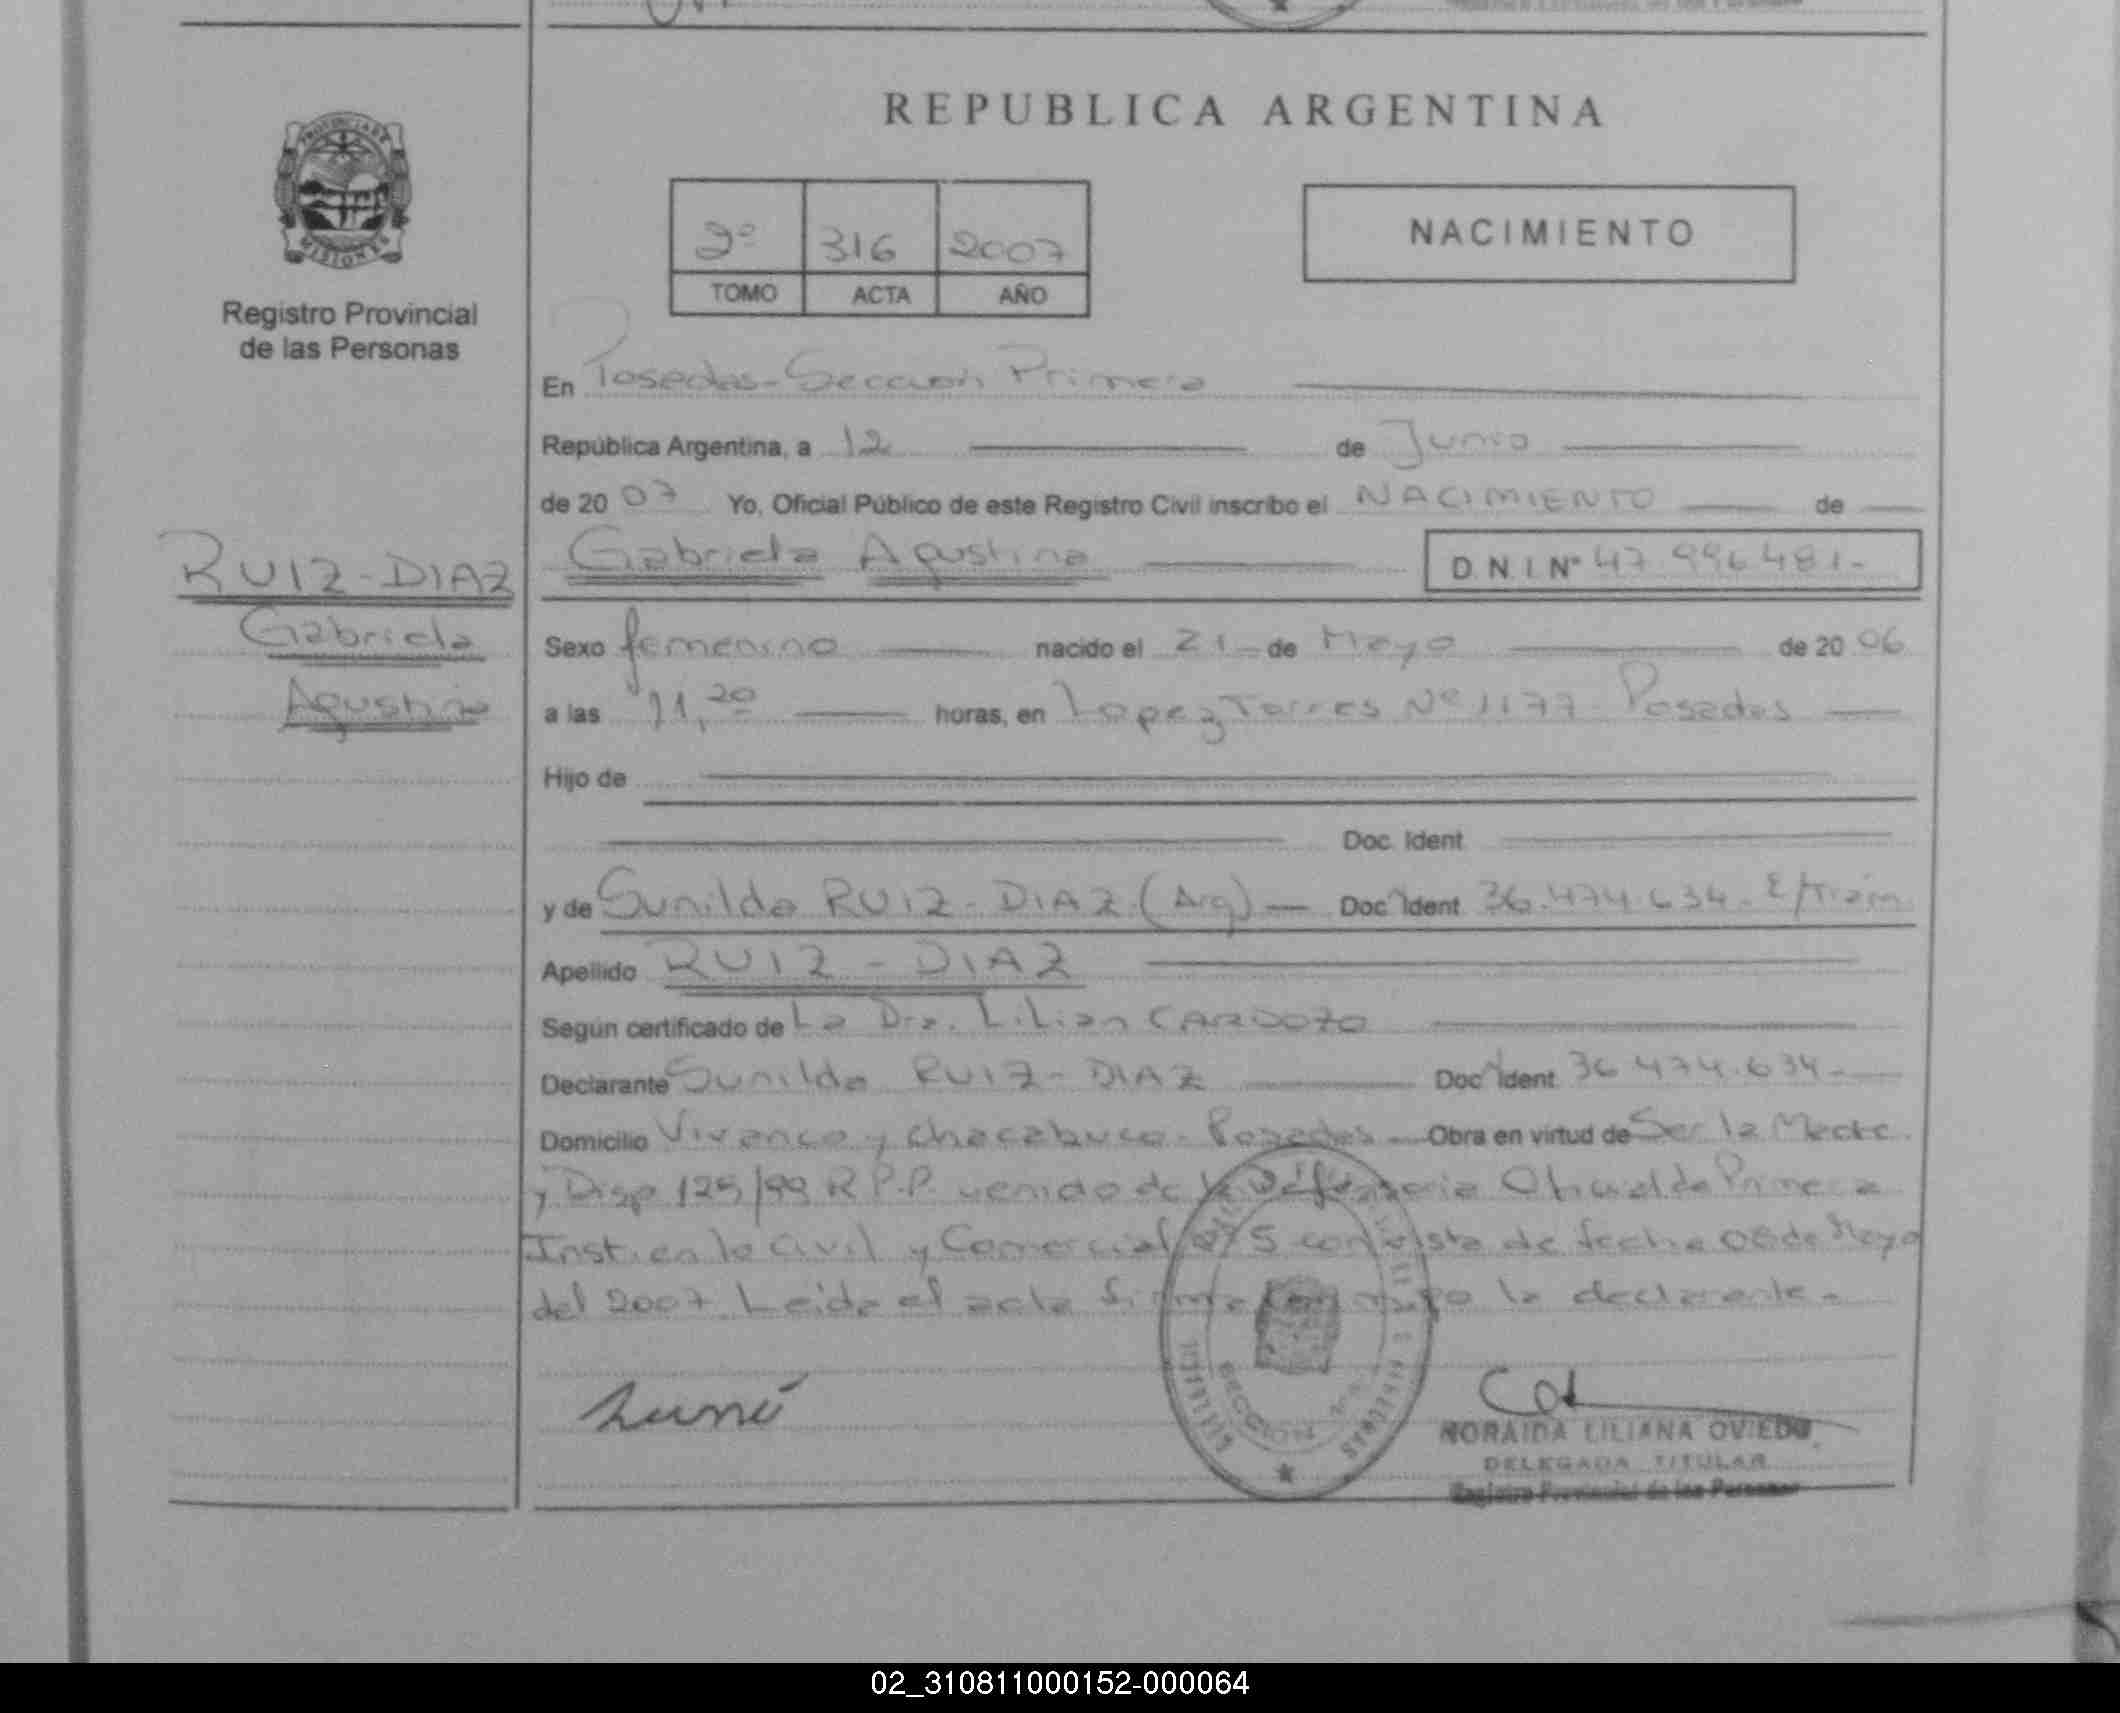 REPUBLICA ARGENTINA
PROVINCIA DE
MISIONES
Registro Provincial
de las Personas
2º 316 2007
TOMO ACTA AÑO
NACIMIENTO
En Posedas-Seccion Primera
República Argentina, a 12 de Junio
de 20 07 Yo, Oficial Público de este Registro Civil inscribo el NACIMIENTO de
RUIZ-DIAZ
Gabriela
Agustina
Gabriela Agustina D.N.I. Nº 47.996.481-
Sexo femenino nacido el 21 de Mayo de 20 06
a las 11,20 horas, en Lopez Torres Nº 1177 Posadas
Hijo de
Doc. Ident
y de Sunilda RUIZ-DIAZ (Arg) Doc Ident 36.474.634-
Apellido RUIZ-DIAZ
Según certificado de La Dra. Lilian CARDOZO
Declarante Sunilda RUIZ-DIAZ Doc Ident 36.474.634-
Domicilio Vivanco y Chacabuco-Posadas Obra en virtud de Ser la Madre
y Disp 125/99 R.P.P. venido de la Defensoria Oficial de Primera
Inst. en lo Civil y Comercial Nº 5 con vista de fecha 08 de Mayo
del 2007. Leida el acta firma la declarante.
SECCION
NORAIDA LILIANA OVIEDO
DELEGADA TITULAR
Registro Provincial de las Personas
02_310811000152-000064